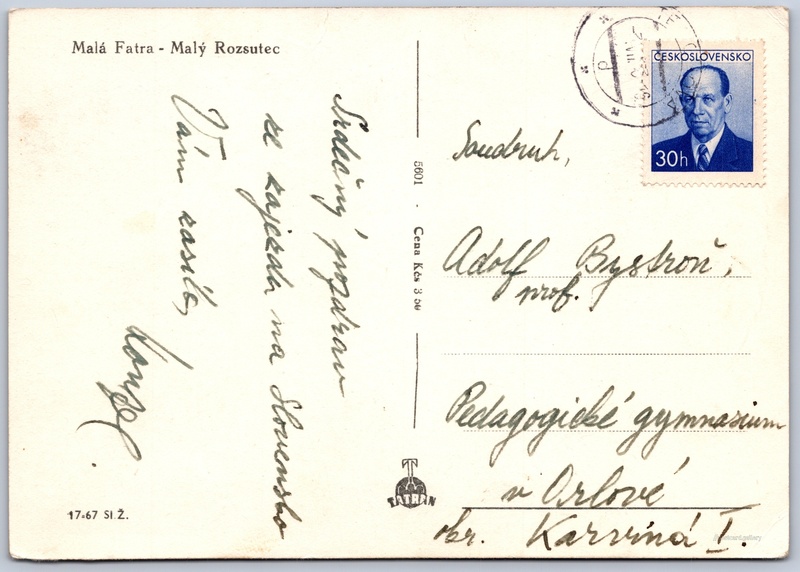 Malá Fatra - Malý Rozsutec
ČESKOSLOVENSKO
30h
Srdečný pozdrav
ze zájezdu na Slovensko
Vám zasílá
5601 · Cena Kčs 3 50
Soudruh,
Adolf Bystroň,
prof.
Pedagogické gymnasium
v Orlové
okr. Karviná I.
TATRAN
17-67 Sl.Ž.